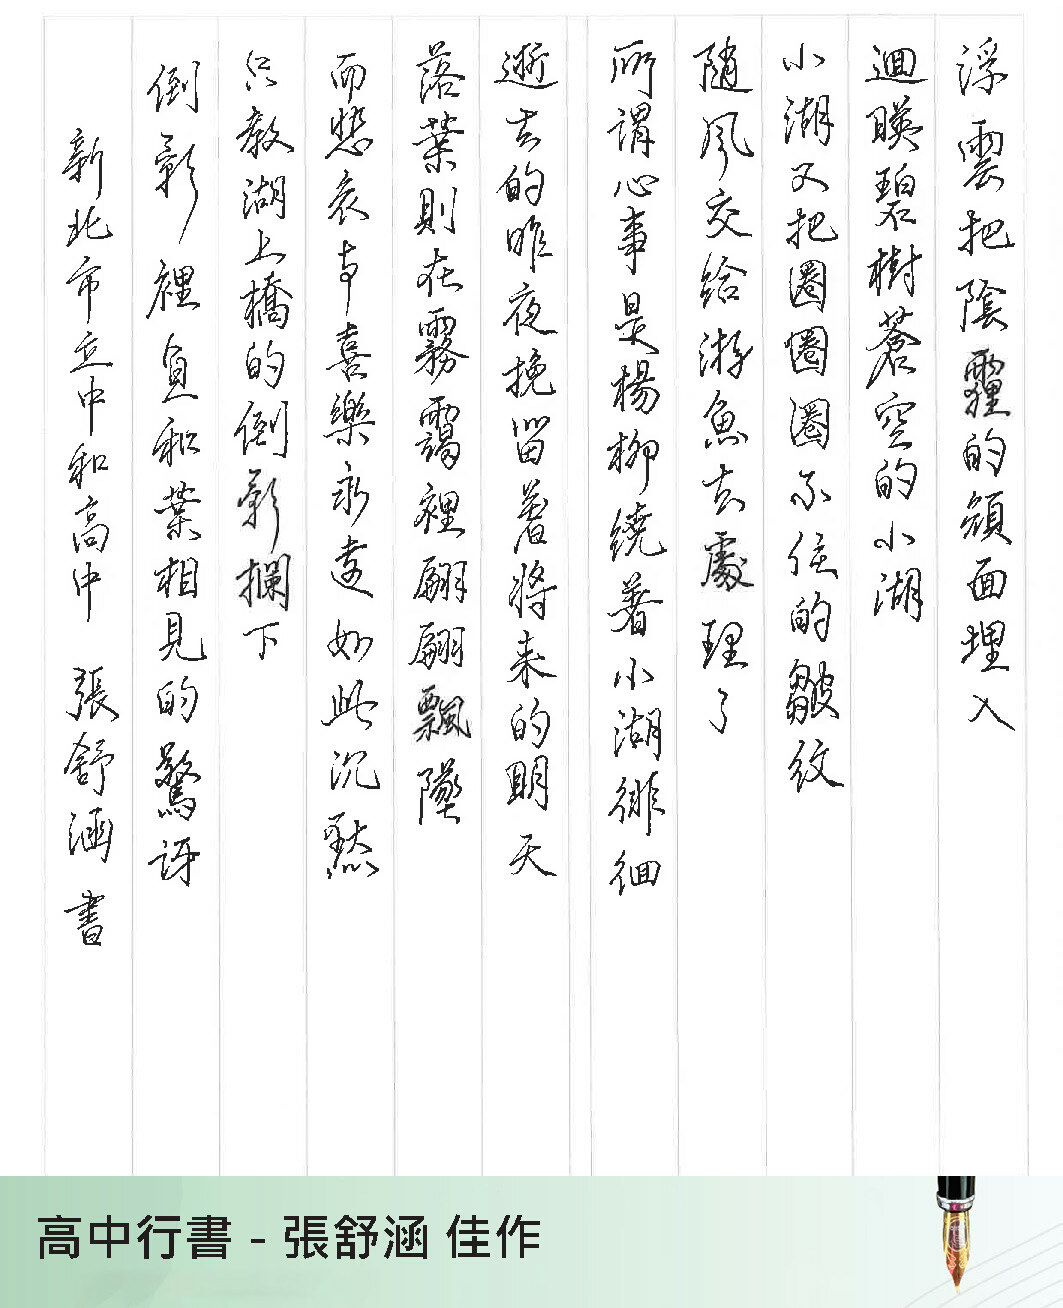 浮雲把陰霾的頹面埋入
迴映碧樹蒼空的小湖
小湖又把圈圈圈圈圈不住的皺紋
隨風交給游魚去處理了
所謂心事是楊柳繞著小湖徘徊
逝去的昨夜挽留著將來的明天
落葉則在霧靄裡翩翩飄墜
而悲哀与喜樂永遠如此沉默
只教湖上橋的倒影攔下
倒影裡魚和葉相見的驚訝
新北市立中和高中 張舒涵 書
高中行書 - 張舒涵 佳作